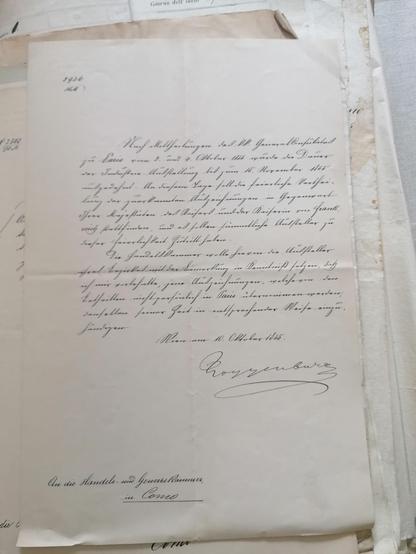 Nach Mittheilungen des KK Generalconsulates
zu Paris vom 2. und 4. Oktober 1855 wurde die Dauer
der Industrie Ausstellung bis zum 15. November 1855
ausgedehnt. An diesem Tage soll die feierliche Verthei-
lung der zuerkannten Auszeichnungen in Gegenwart
Ihrer Majestäten des Kaisers und der Kaiserin von Frank-
reich stattfinden und es sollen sämmtliche Aussteller zu
dieser Feierlichkeit Zutritt haben.
Die Handelskammer wolle hievon die Aussteller
ihres Bezirkes mit der Bemerkung in Kenntniß setzen, daß
ich mir vorbehalte, jene Auszeichnungen, welche von den
Betheilten nicht persönlich in Paris übernommen werden,
denselben seiner Zeit in entsprechender Weise einzu-
händigen.
Wien am 10. Oktober 1855.
Toggenburg
An die Handels- und Gewerbekammer
in Como